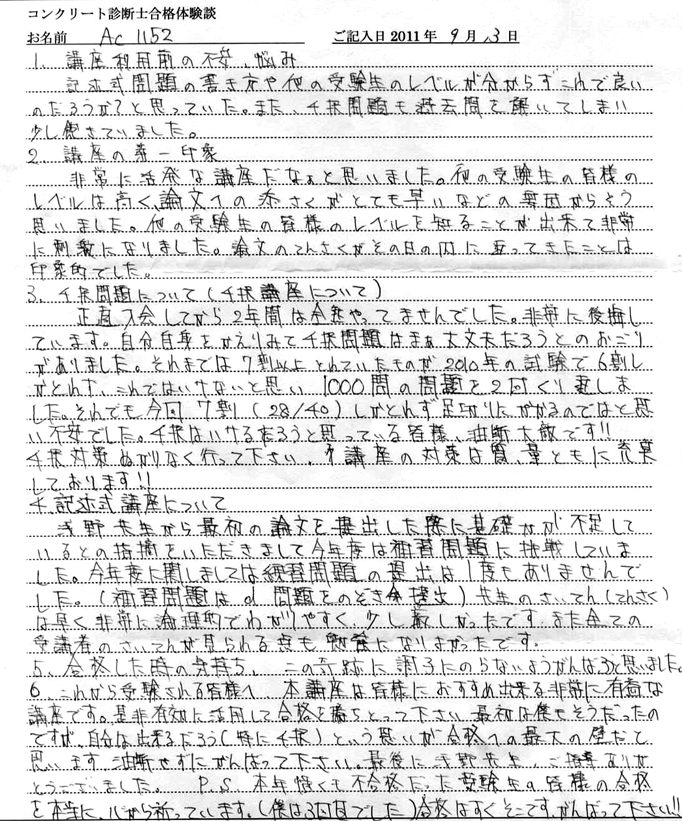 コンクリート診断士合格体験談
お名前 Ac 1152 ご記入日 2011年 9月 13日
1. 講座利用前の不安、悩み
記述式問題の書き方や他の受験生のレベルが分からずこれで良い
のだろうか?と思っていた。また、4択問題も過去問を解いてしまい
少し飽きていました。
2. 講座の第一印象
非常に活発な講座だなぁと思いました。他の受験生の皆様の
レベルは高く、論文への添さくがとても早いなどの要因からそう
思いました。他の受験生の皆様のレベルを知ることが出来て非常
に刺激になりました。論文のてんさくがその日の内に返ってきたことは
印象的でした。
3. 4択問題について(4択講座について)
正直入会してから2年間は全然やってませんでした。非常に後悔し
ています。自分自身をかえりみて4択問題はまぁ大丈夫だろうとのおごり
がありました。それまでは7割以上とれていたものが2010年の試験で6割し
かとれず、これではいけないと思い1000問の問題を2回くり返しま
した。それでも今回7割(28/40)しかとれず足切りにかかるのではと思
い不安でした。4択はいけるだろうと思っている皆様、油断大敵です!!
4択対策ぬかりなく行って下さい。本講座の対策は質、量ともに充実
しております!!
4. 記述式講座について
浅野先生から最初の論文を提出した際に基礎力が不足して
いるとの指摘をいただきまして今年度は補習問題に挑戦していま
した。今年度に関しましては練習問題の提出は1度もありませんで
した。(補習問題は 問題をのぞき全提出)先生のさいてん(てんさく)
は早く非常に論理的でわかりやすく、少し厳しかったです。また全ての
受講者のさいてんが見られる点も勉強になりよかったです。
5、合格した時の気持ち、 この奇跡に調子にのらないようがんばろうと思いました。
6、これから受験される皆様へ 本講座は皆様におすすめ出来る非常に有意な
講座です。是非有効に活用して合格を勝ちとって下さい。最初は僕もそうだったの
ですが、自分は出来るだろう(特に4択)という思いが合格への最大の壁だと
思います。油断せずにがんばって下さい。最後に浅野先生、ご指導ありが
とうございました。 P.S. 本年惜くも不合格だった受験生の皆様の合格
を本当に、心から祈っています。(僕は3回目でした)合格はすぐそこです。がんばって下さい!!